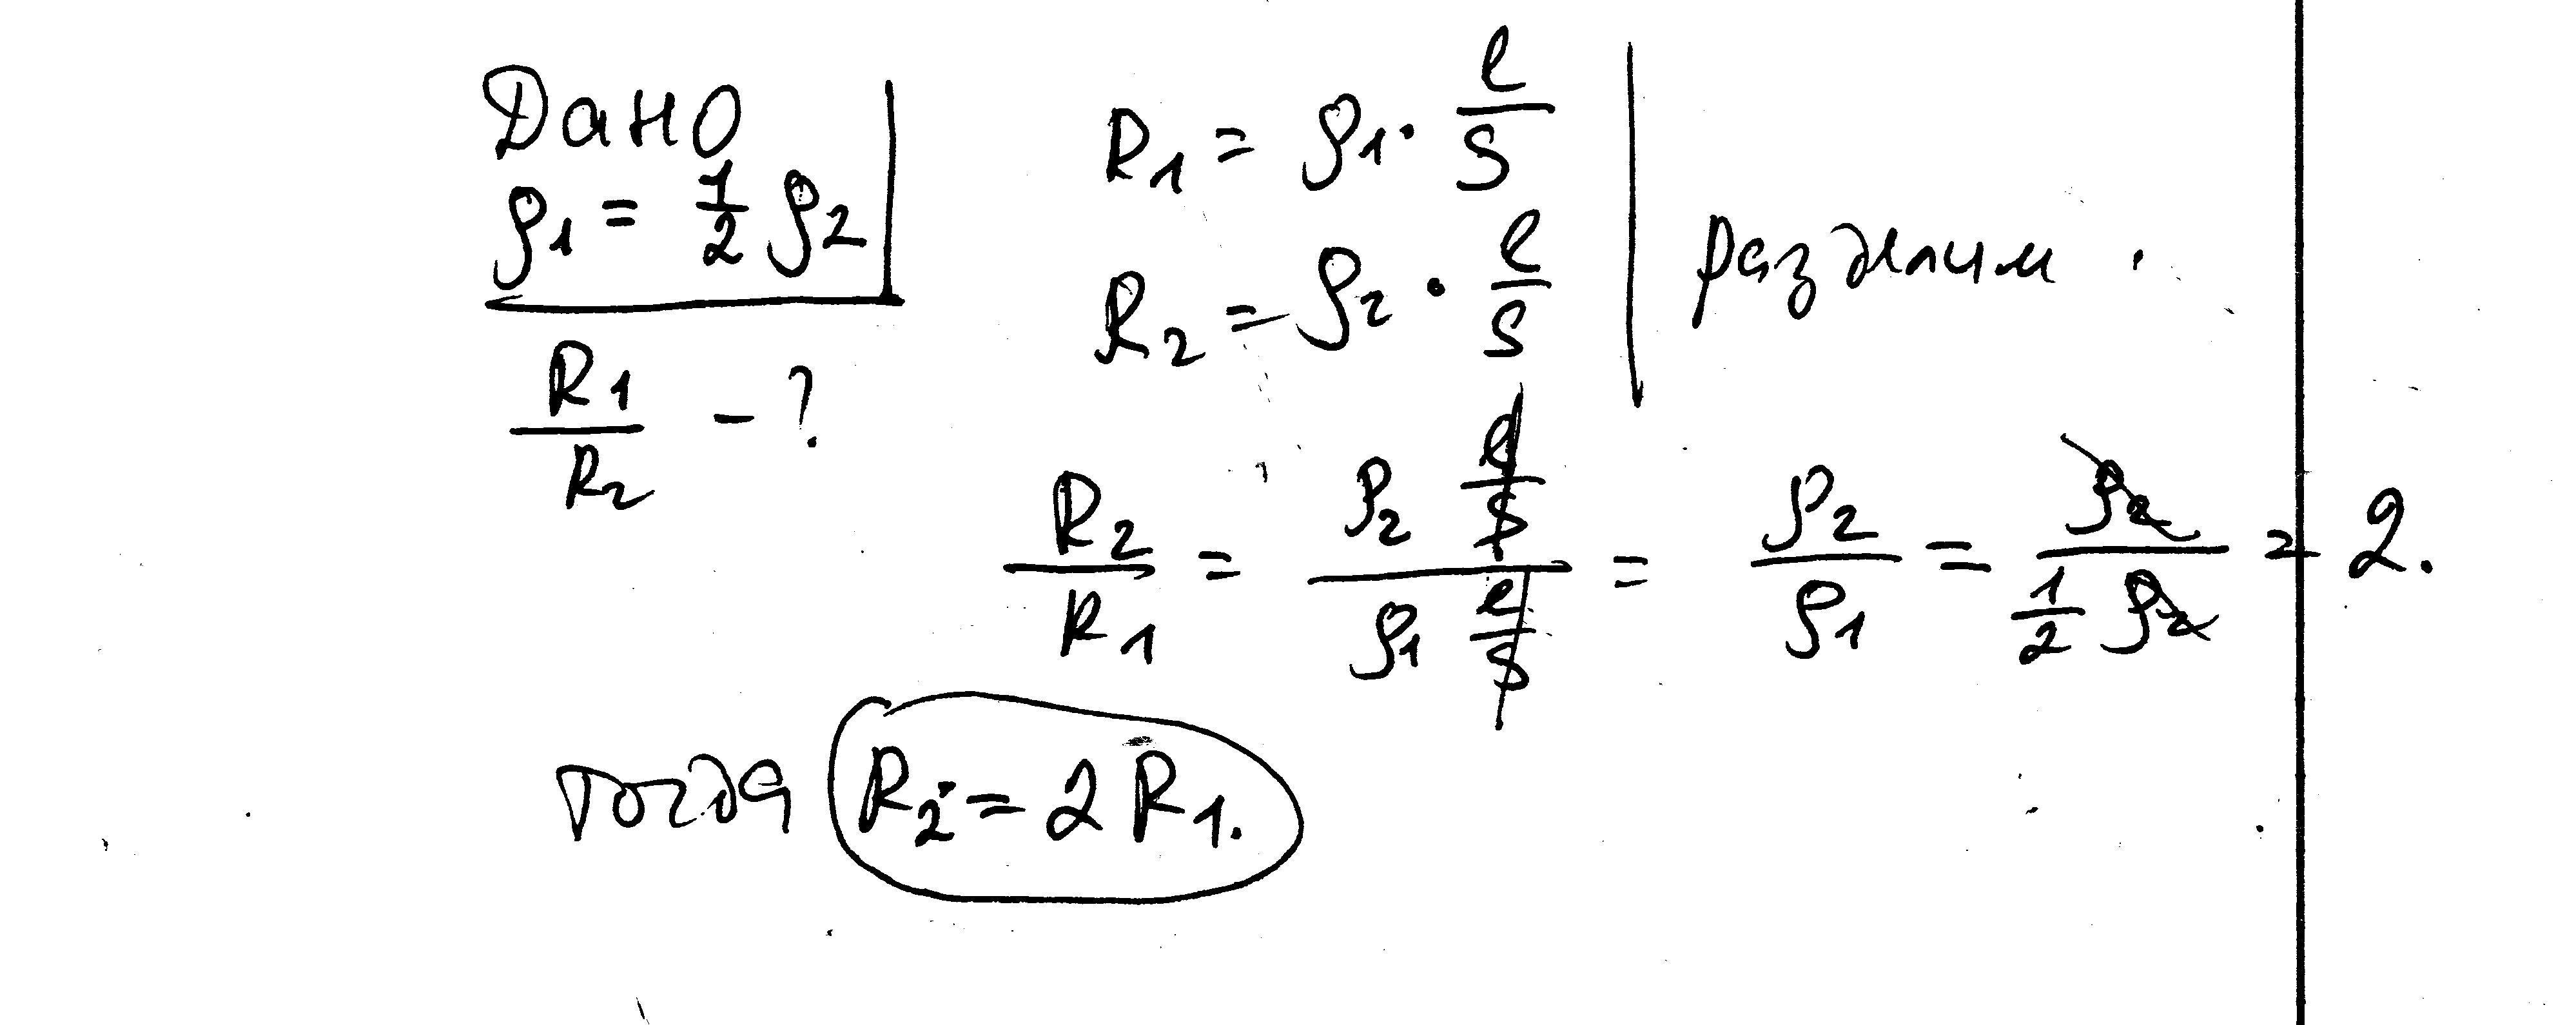 Дано
ρ1 = 1/2 ρ2
R1/R2 - ?
R1 = ρ1 · l/S
R2 = ρ2 · l/S
разделим.
R2/R1 = (ρ2 l/S)/(ρ1 l/S) = ρ2/ρ1 = ρ2/(1/2 ρ2) = 2.
тогда R2 = 2 R1.